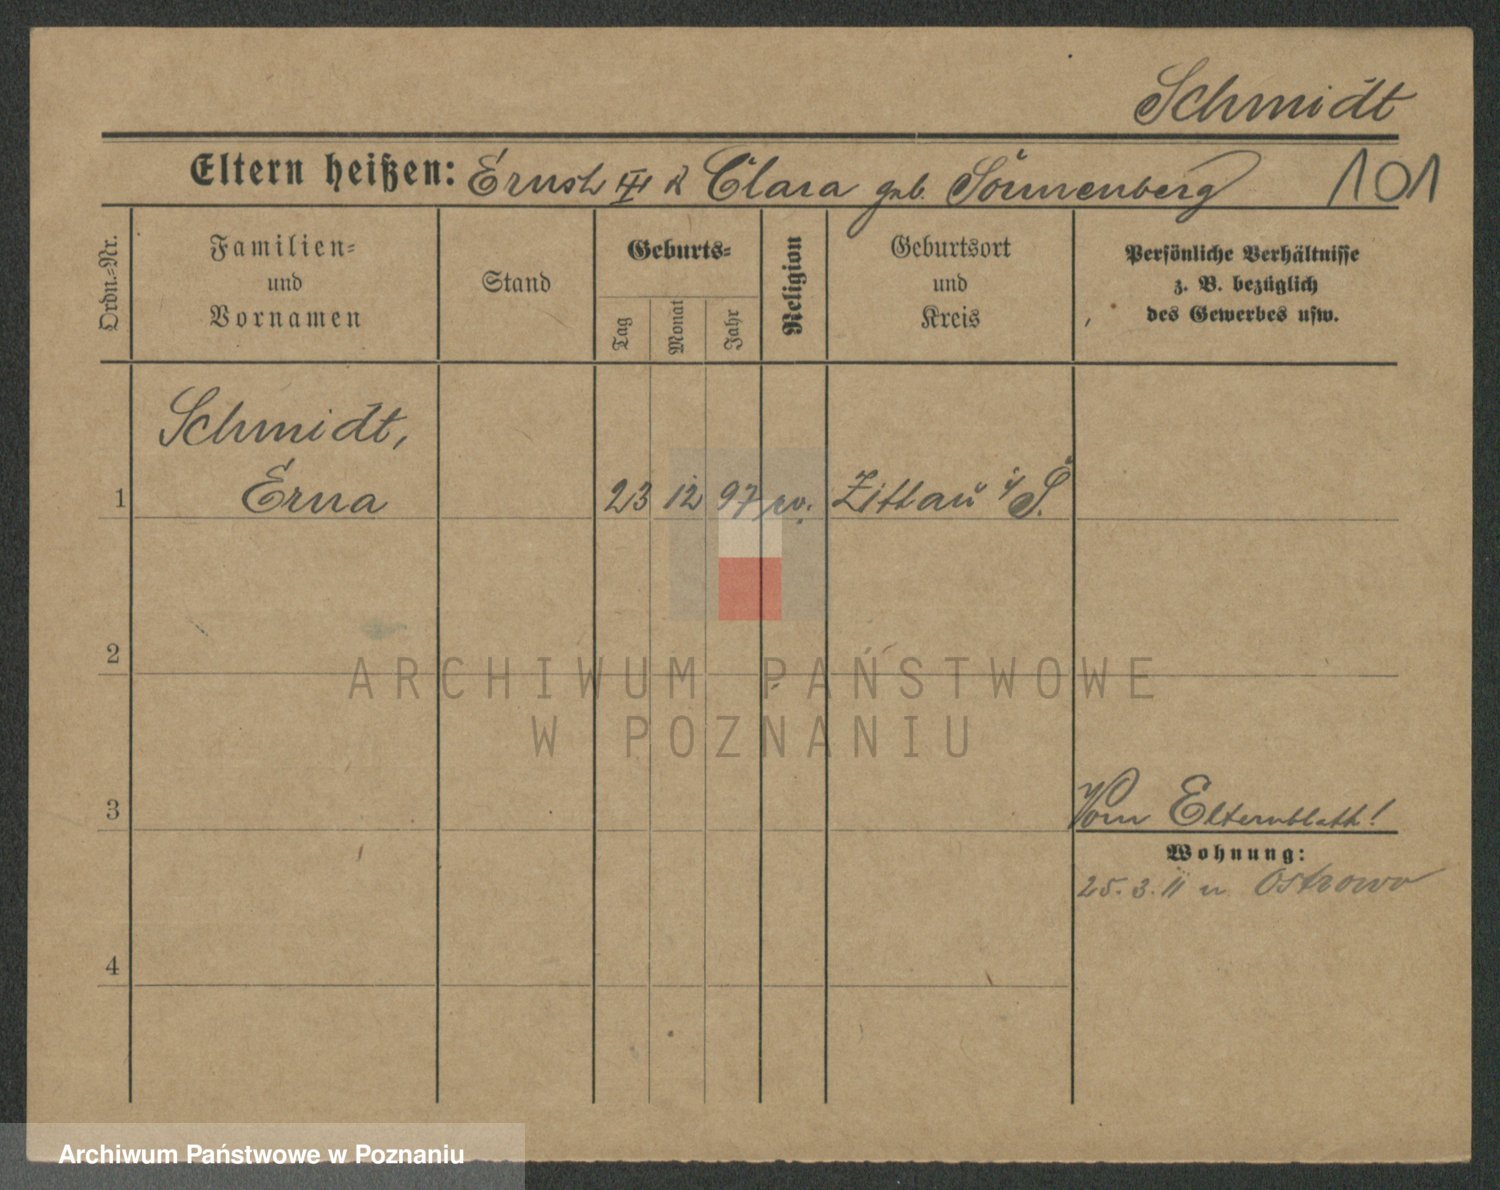 Schmidt
Eltern heißen: Ernst III & Clara geb. Sonnenberg 101
Ordn.-Nr.
Familien-
und
Vornamen
Stand
Geburts-
Tag
Monat
Jahr
Religion
Geburtsort
und
Kreis
Persönliche Verhältnisse
z. B. bezüglich
des Gewerbes usw.
Schmidt,
1 Erna 23 12 97 ev. Zittau i/S.
2
ARCHIWUM PAŃSTWOWE
W POZNANIU
3 Vom Elternblatt!
Wohnung:
25. 3. 11 n. Ostrowo
4
Archiwum Państwowe w Poznaniu